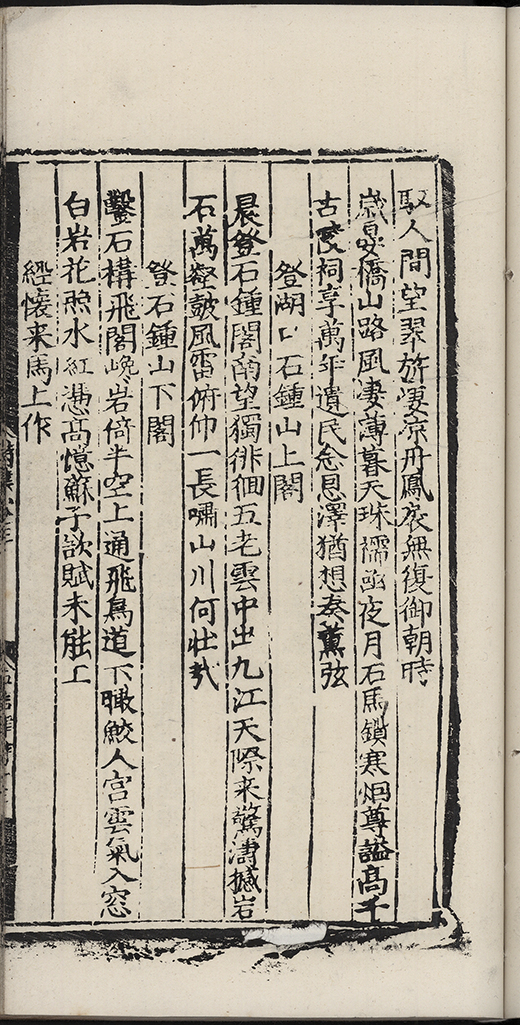 馭人間望翠旂凄凉丹鳳扆無復御朝時
歲晏僑山路風凄薄暮天珠襦幽夜月石馬鎖寒烟尊謚髙千
古陵祠享萬年遺民念恩澤猶想奏薫弦
登湖口石鍾山上閣
晨登石鍾閣啇望獨徘徊五老雲中出九江天際来驚濤撼岩
石萬壑皷風雷俯仰一長嘯山川何壮㦲
登石鍾山下閣
鑿石構飛閣巉岩倚半空上通飛鳥道下瞰鮫人宫雲氣入窓
白岩花照水紅憑髙憶蘇子欲賦未能工
經懐来馬上作